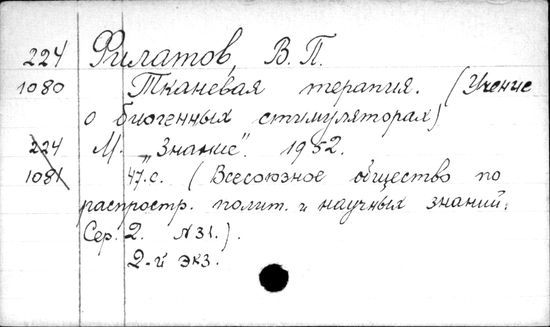 224 Филатов, В. П.
1080 Тканевая терапия. (Учение
о биогенных стимуляторах)
224 М. "Знание". 1952.
1081 47.с. (Всесоюзное общество по
распростр. полит. и научных знаний.
Сер. 2. N31.).
2-й экз.